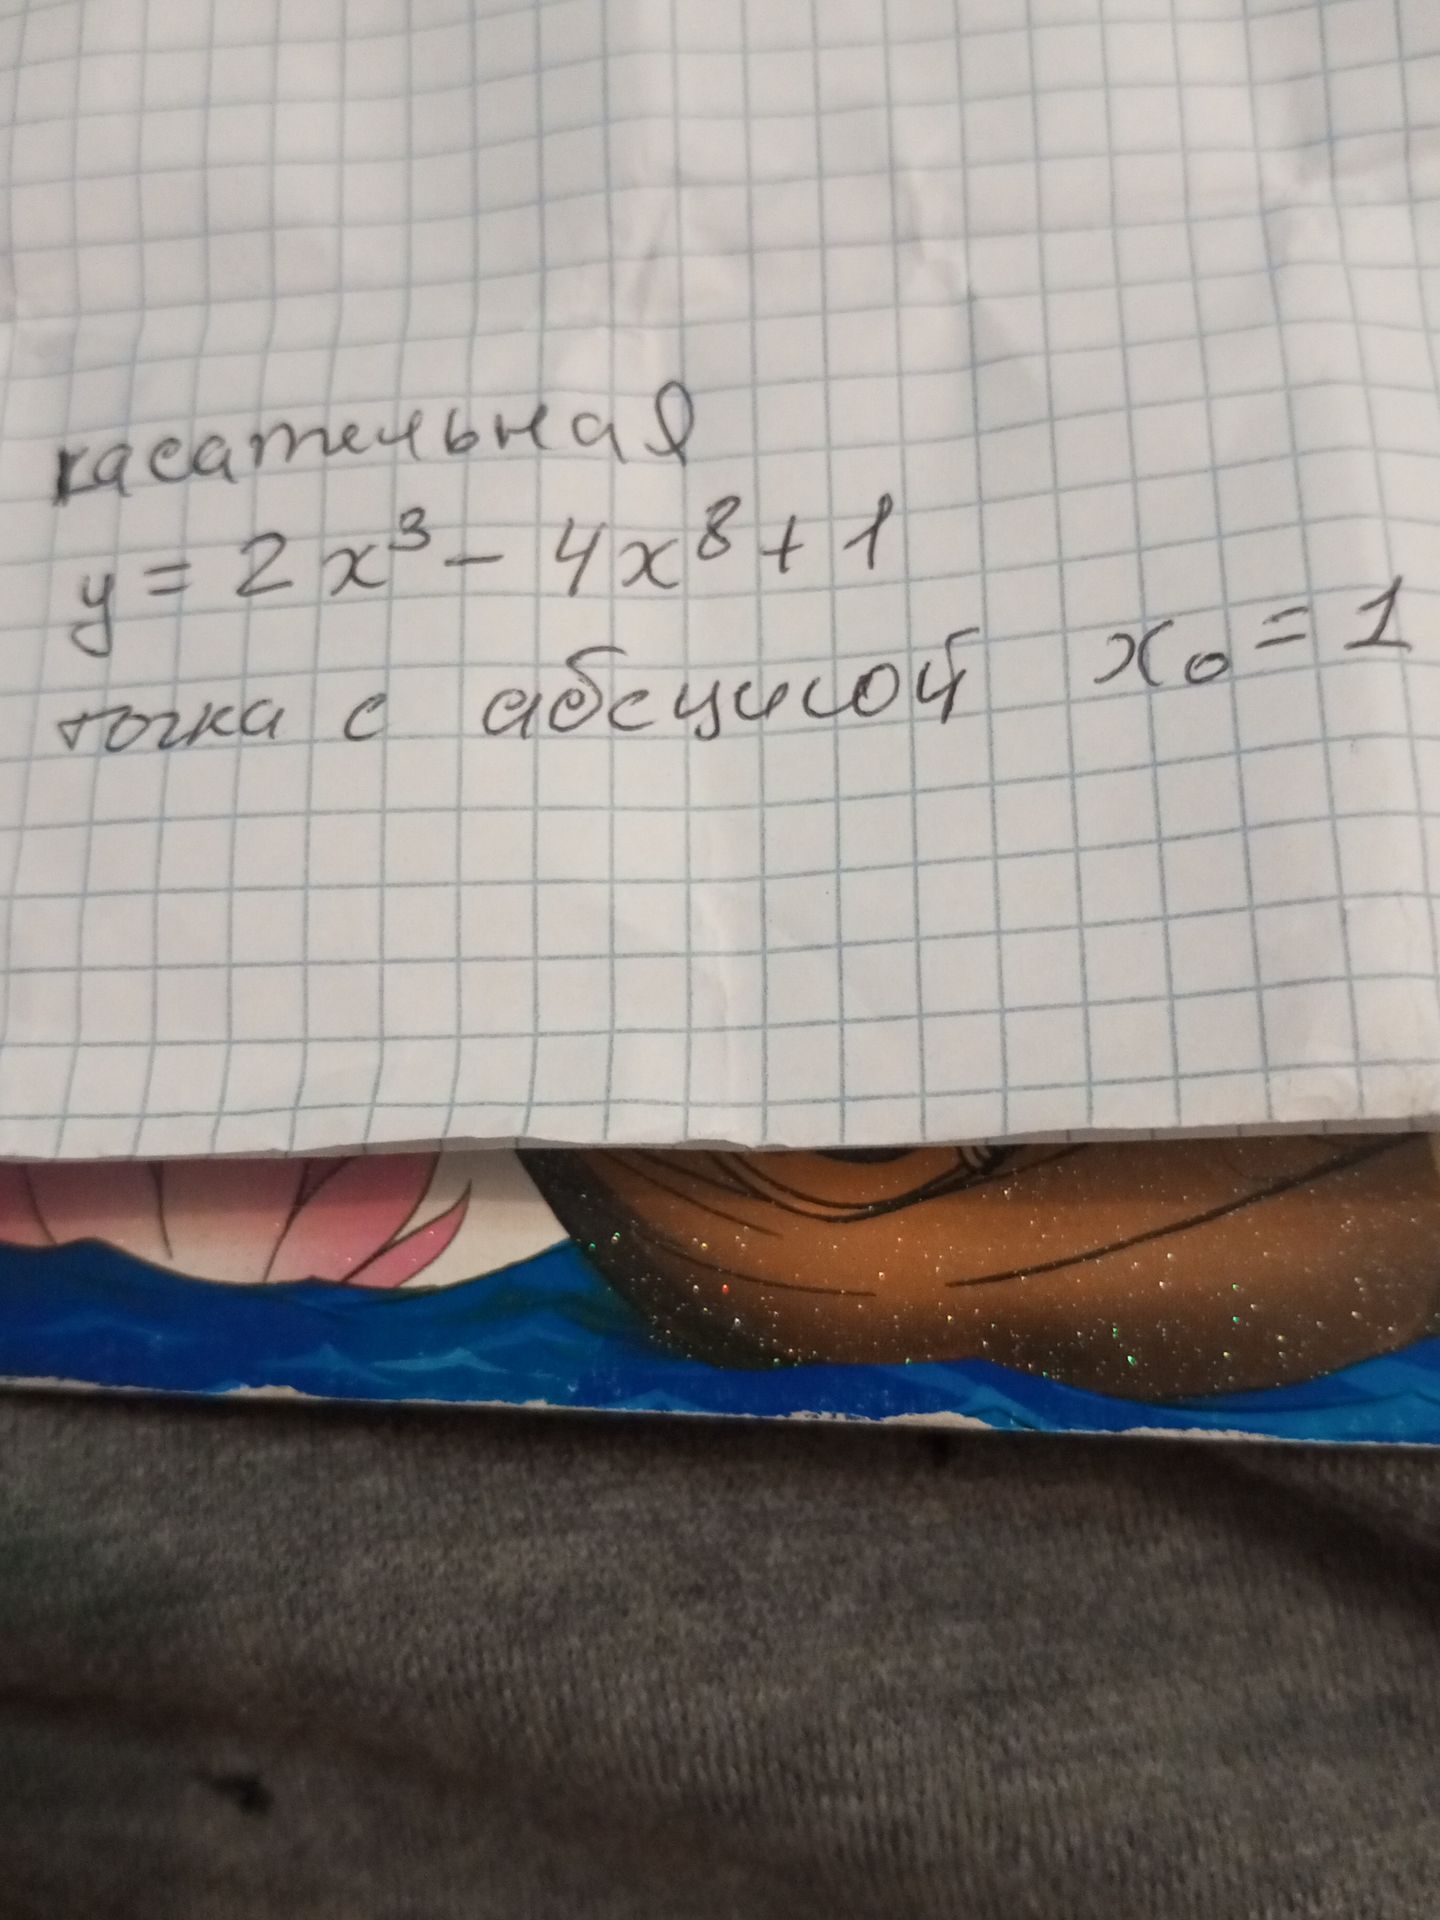 касательная
y = 2x³ - 4x⁸ + 1
точка с абсцисой x₀ = 1